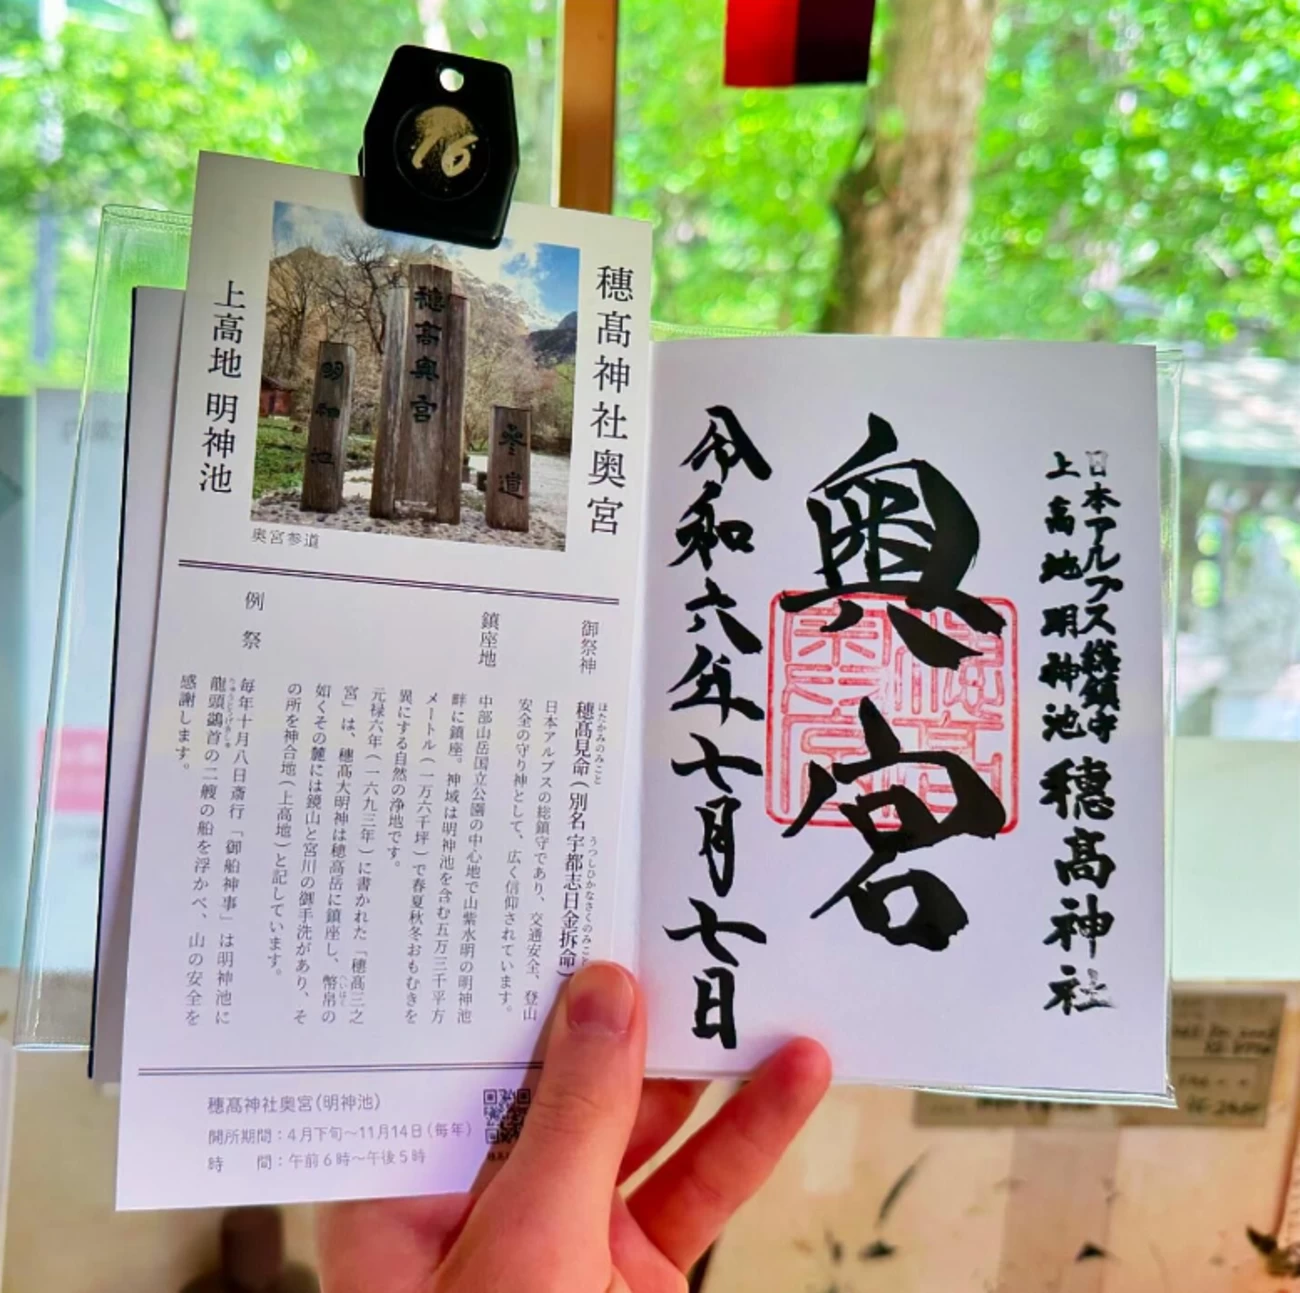 16
穗髙神社奥宮
上高地 明神池
穂高奥宮
明神池
参道
奥宮参道
御祭神
穂髙見命(別名 宇都志日金拆命)
ほたかみのみこと
うつしひかなさくのみこと
日本アルプスの総鎮守であり、交通安全、登山
安全の守り神として、広く信仰されています。
鎮座地
中部山岳国立公園の中心地で山紫水明の明神池
畔に鎮座。神域は明神池を含む五万三千平方
メートル(一万六千坪)で春夏秋冬おもむきを
異にする自然の浄地です。
元禄六年(一六九三年)に書かれた「穂髙三之
宮」は、穂髙大明神は穂高岳に鎮座し、幣帛の
へいはく
如くその麓には鏡山と宮川の御手洗があり、そ
の所を神合地(上高地)と記しています。
例 祭
毎年十月八日斎行「御船神事」は明神池に
龍頭鷁首の二艘の船を浮かべ、山の安全を
りゅうとうげきしゅ
感謝します。
穂髙神社奥宮(明神池)
開所期間:4月下旬〜11月14日(毎年)
時 間:午前6時〜午後5時
日本アルプス総鎮守
上高地明神池 穂高神社
奥宮
令和六年七月七日